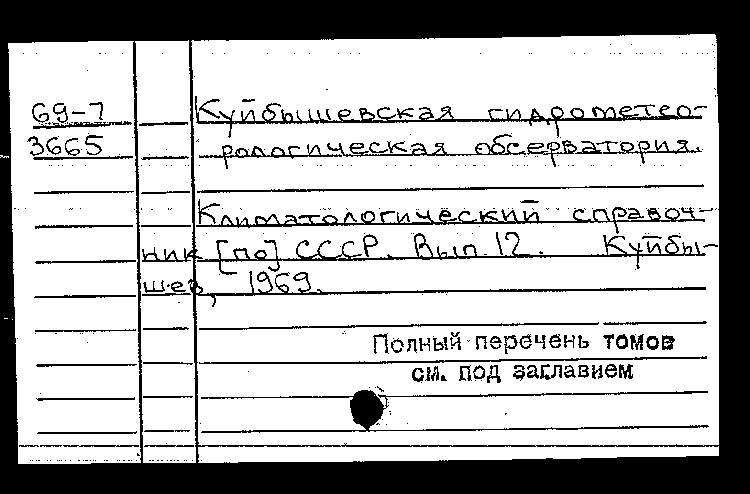 69-7 Куйбышевская гидрометео-
3665 рологическая обсерватория.
Климатологический справоч-
ник [по] СССР. Вып. 12. Куйбы-
шев, 1969.
Полный перечень томов
см. под заглавием